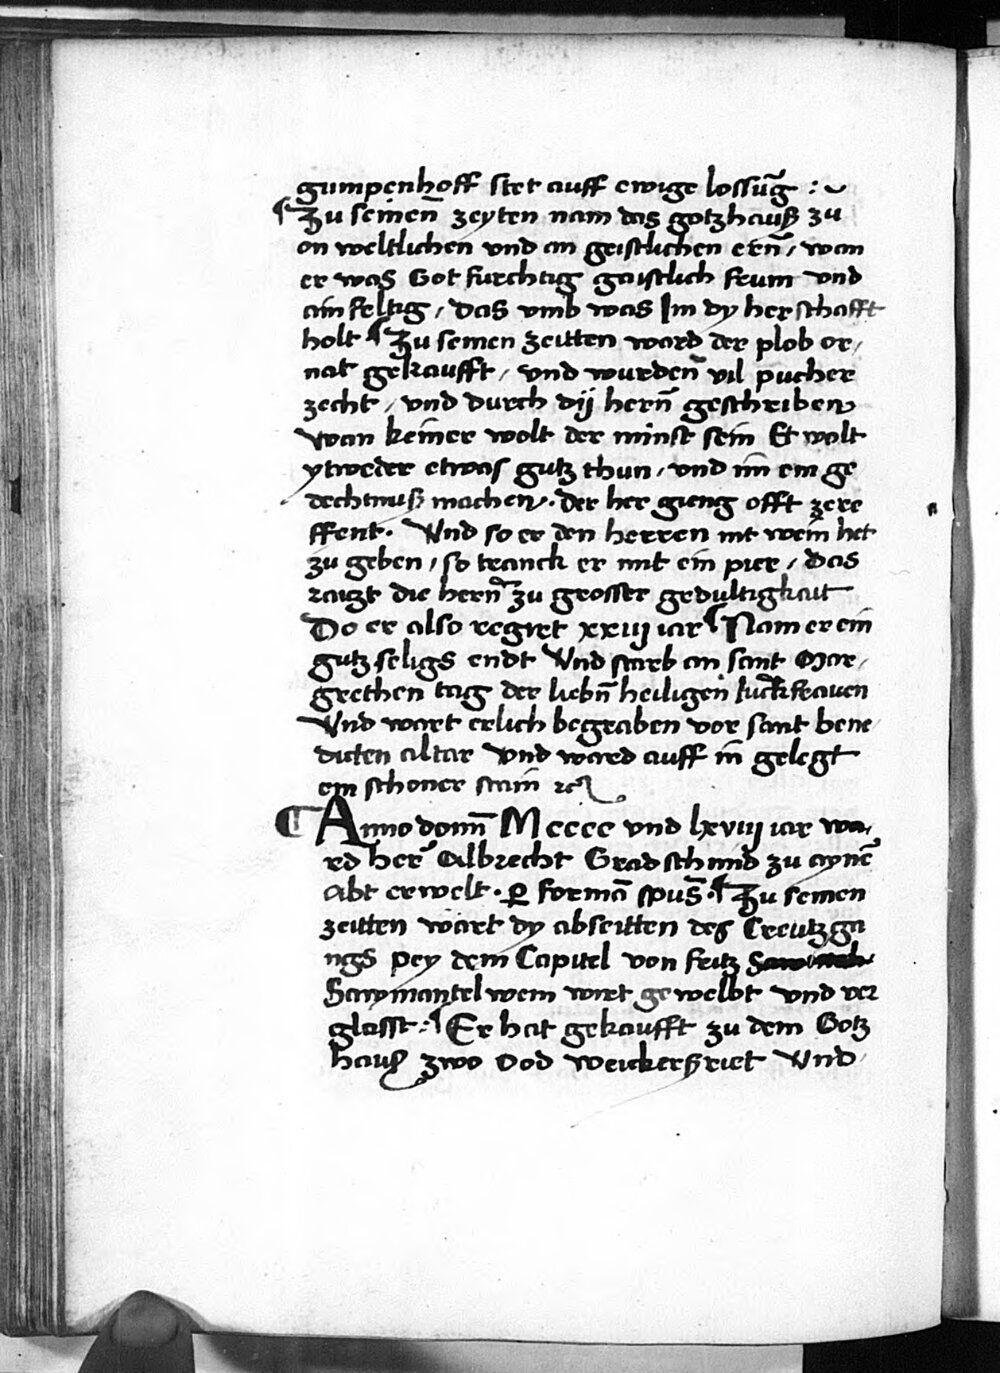 gumpenhoff stet auff ewige lossūg :~
¶ Zu seineñ zeyten nam das gotzhauß zu
an weltlichen vnd an geistlichen erñ, wan
er was Got furchtig gaistlich frum vnd
ainfeltig, das vmb was Im dy herschafft
holt ¶ Zu seinen zeitten ward der plob or,
nat gekaufft, vnd wurdeñ vil pucher
zecht, vnd durch dij herñ geschriben
Wan keiner wolt der minst sein Et wolt
ytweder etwas gutz thun, vnd im ein ge
dechtnuß machen. der her gieng offt zere
ffent. Vnd so er den herren nit wein het
zu geben, so tranck er mit ein pier, das
raitzt die herñ zu grosser gedultigkait
Do er also regiret xxiij iar ¶ Nam er ein
gutz seligs endt Vnd starb an sant Mar,
grethen tag der liebñ heiligen Iuckfrauen
Vnd wart erlich begraben vor sant bene
dicten altar Vnd ward auff in gelegt
ein schoner stain ꝛc
¶ Anno domī M cccc vnd lxviij iar wa,
rd her Albrecht Gradschmid zu ayneē
Abt erwelt. ꝑ formā spūs. ¶ Zu seinen
zeitten wart dy abseitten des Creutzga
ngs pey dem Capitel von fritz
Saymantel wem wirt gewelbt vnd ver
glasst: ¶ Er hat gekaufft zu dem Gotz
hauß zwo Ood weickerßriet Vnd